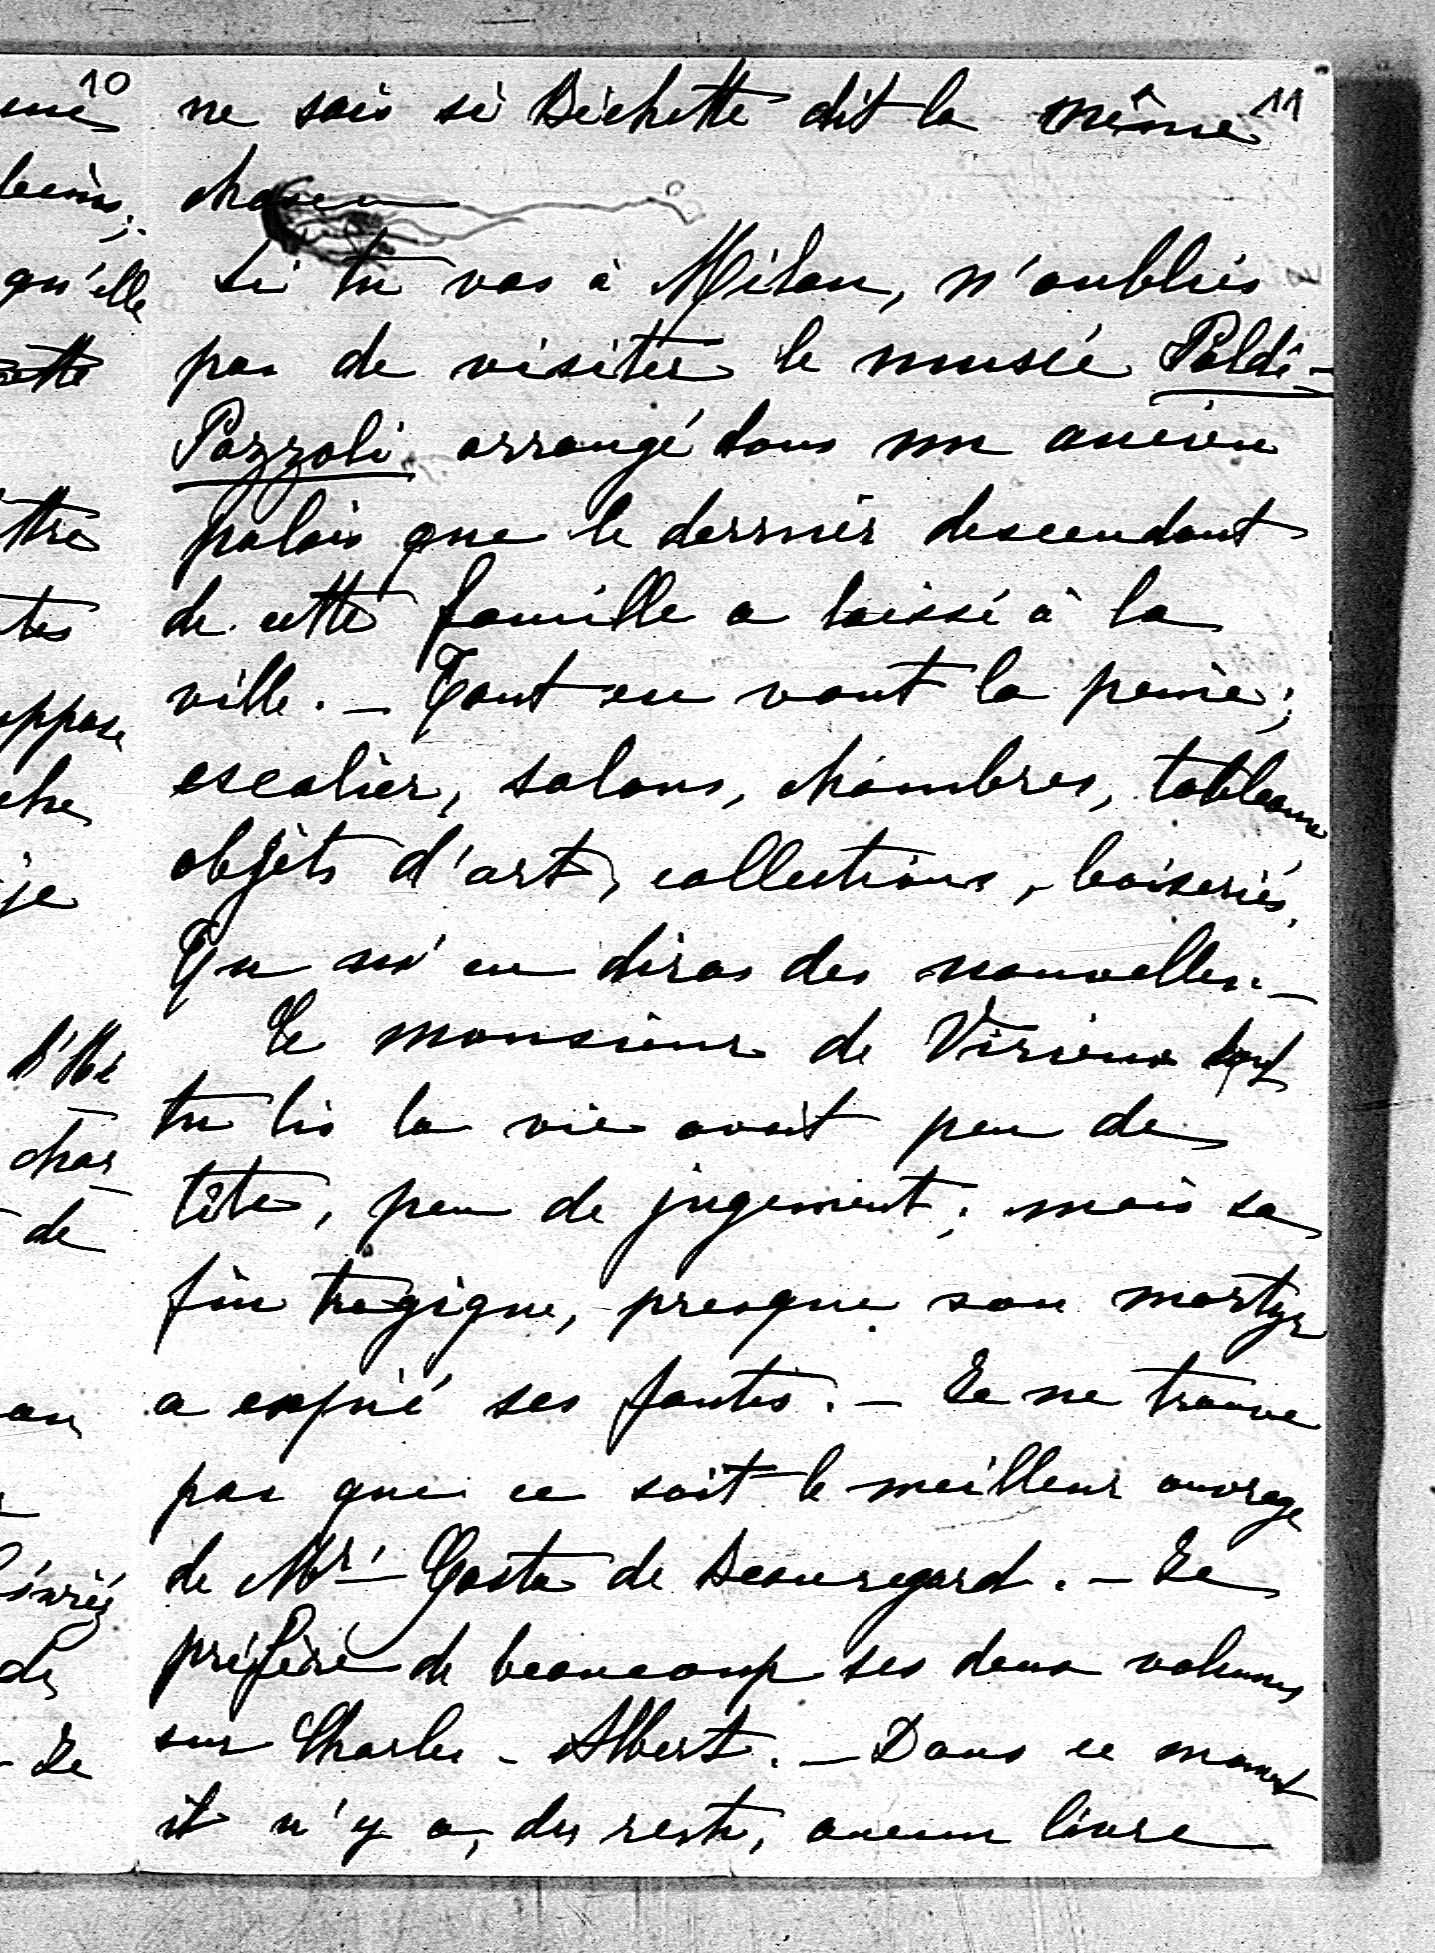 10
11
ne sais si Béchette dit la même
chose.
Si tu vas à Milan, n'oublies
pas de visiter le musée Poldi-
Pozzoli arrangé dans un ancien
palais que le dernier descendant
de cette famille a laissé à la
ville. — Tout en vaut la peine;
escalier, salons, chambres, tableaux
objets d'art, collections, boiseries.
Tu m'en diras des nouvelles. —
Ce monsieur de Virieux dont
tu lis la vie avait peu de
tête, peu de jugement; mais sa
fin tragique, presque son martyr
a expié ses fautes. — Je ne trouve
pas que ce soit le meilleur ouvrage
de Mr Costa de Beauregard. — Je
préfère de beaucoup ses deux volumes
sur Charles-Albert. — Dans ce moment
il n'y a, du reste, aucun livre
qu'elle
ttre
tes
oppose
che
je
char
de
de
- Je